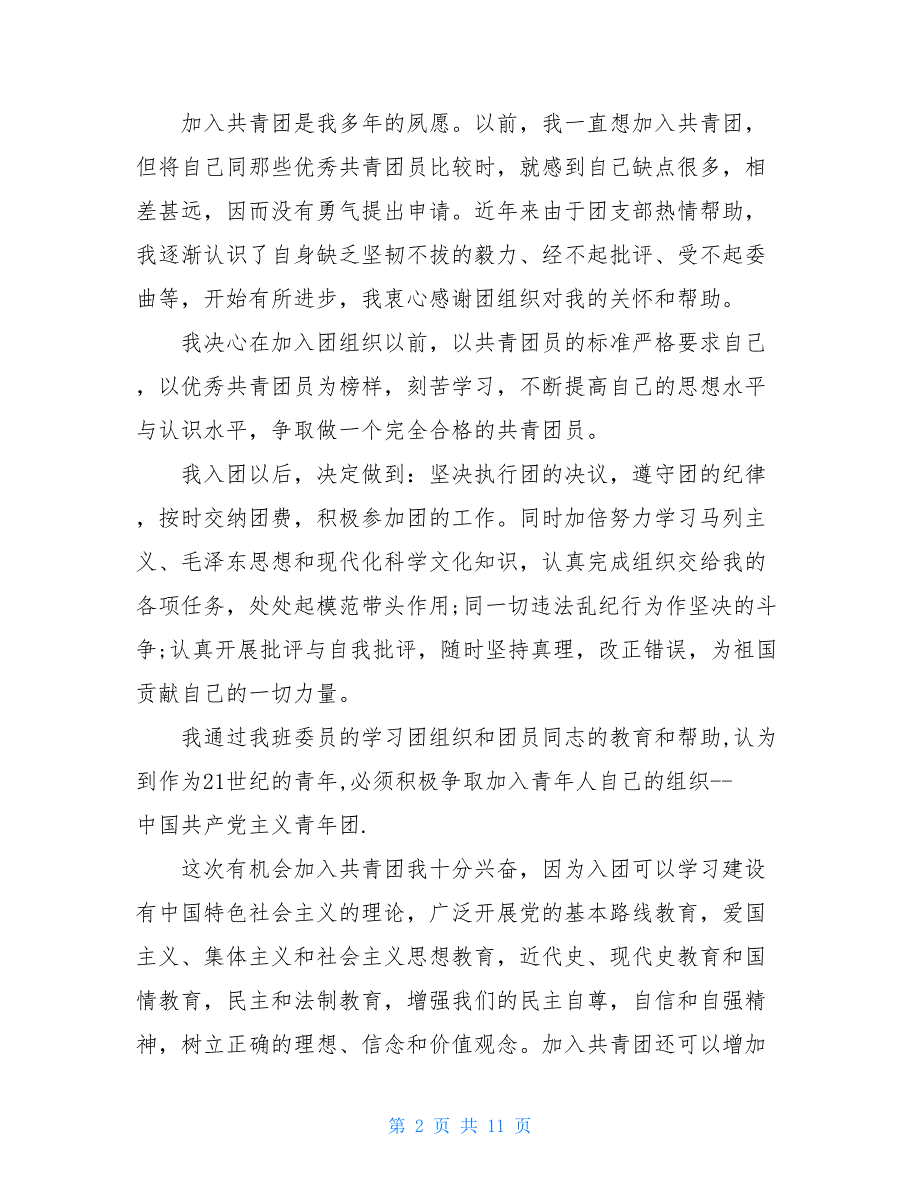 加入共青团是我多年的夙愿。以前，我一直想加入共青团，
但将自己同那些优秀共青团员比较时，就感到自己缺点很多，相
差甚远，因而没有勇气提出申请。近年来由于团支部热情帮助，
我逐渐认识了自身缺乏坚韧不拔的毅力、经不起批评、受不起委
曲等，开始有所进步，我衷心感谢团组织对我的关怀和帮助。
我决心在加入团组织以前，以共青团员的标准严格要求自己
，以优秀共青团员为榜样，刻苦学习，不断提高自己的思想水平
与认识水平，争取做一个完全合格的共青团员。
我入团以后，决定做到：坚决执行团的决议，遵守团的纪律
，按时交纳团费，积极参加团的工作。同时加倍努力学习马列主
义、毛泽东思想和现代化科学文化知识，认真完成组织交给我的
各项任务，处处起模范带头作用;同一切违法乱纪行为作坚决的斗
争;认真开展批评与自我批评，随时坚持真理，改正错误，为祖国
贡献自己的一切力量。
我通过我班委员的学习团组织和团员同志的教育和帮助,认为
到作为21世纪的青年,必须积极争取加入青年人自己的组织--
中国共产党主义青年团.
这次有机会加入共青团我十分兴奋，因为入团可以学习建设
有中国特色社会主义的理论，广泛开展党的基本路线教育，爱国
主义、集体主义和社会主义思想教育，近代史、现代史教育和国
情教育，民主和法制教育，增强我们的民主自尊，自信和自强精
神，树立正确的理想、信念和价值观念。加入共青团还可以增加
第 2 页 共 11 页